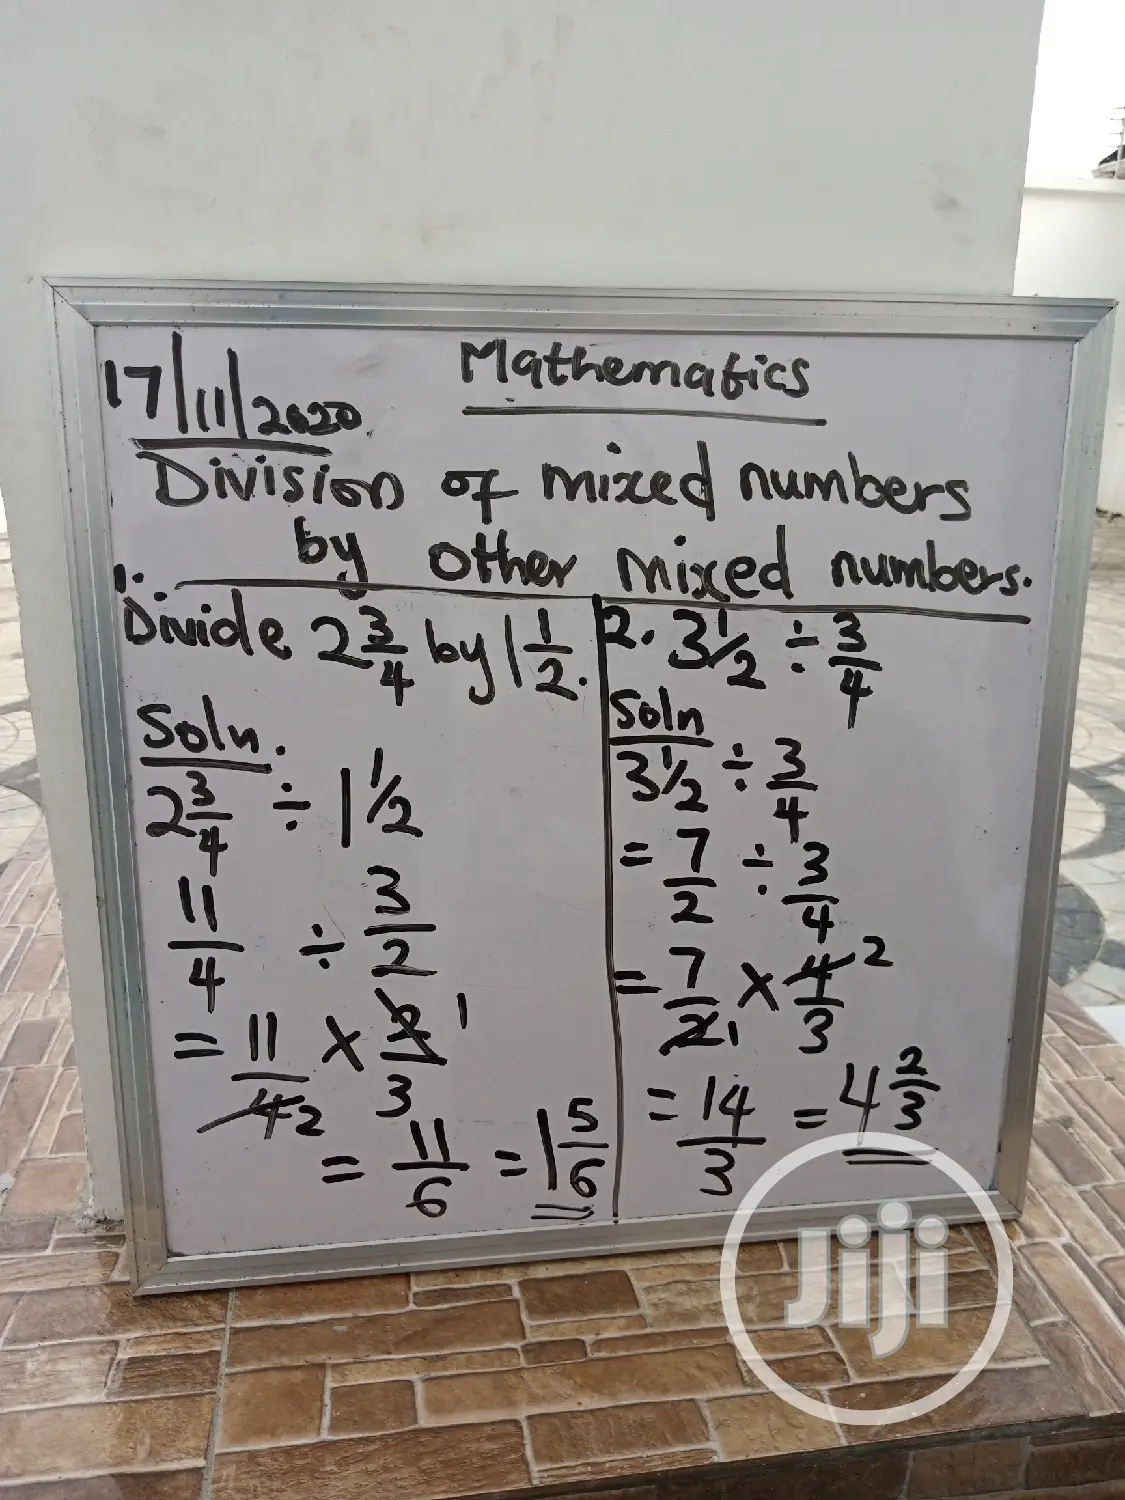 17/11/2020
Mathematics
Division of mixed numbers
by other mixed numbers.
1.
Divide 2 3/4 by 1 1/2.
Soln.
2 3/4 ÷ 1 1/2
11/4 ÷ 3/2
= 11/4 2 × 2/3 1
= 11/6 = 1 5/6
2. 3 1/2 ÷ 3/4
Soln
3 1/2 ÷ 3/4
= 7/2 ÷ 3/4
= 7/2 1 × 4/3 2
= 14/3 = 4 2/3
Jiji